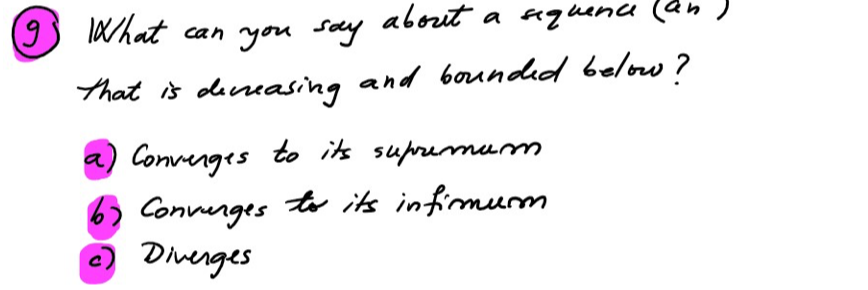 9 What can you say about a sequence (an)
that is decreasing and bounded below?
a) Converges to its supremum
b) Converges to its infimum
c) Diverges